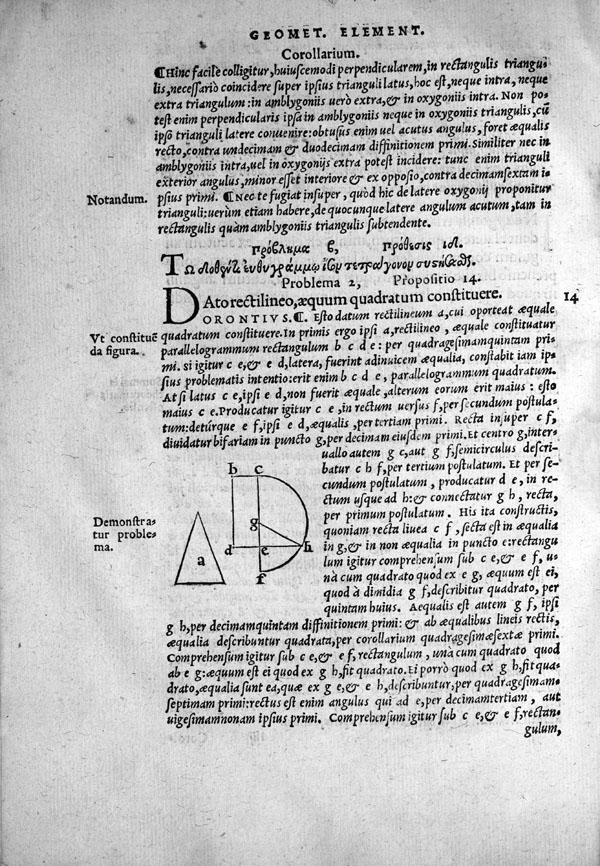 GEOMET. ELEMENT.
Corollarium.
¶Hinc facilè colligitur, huiuscemodi perpendicularem, in rectangulis triangu-
lis, necessariò coincidere super ipsius trianguli latus, hoc est, neque intra, neque
extra triangulum: in amblygoniis uerò extra, & in oxygoniis intra. Non po-
test enim perpendicularis ipsa in amblygoniis neque in oxygoniis triangulis, cū
ipso trianguli latere conuenire: obtusus enim uel acutus angulus, foret æqualis
recto, contra undecimam & duodecimam diffinitionem primi. Similiter nec in
amblygoniis intra, uel in oxygoniis extra potest incidere: tunc enim trianguli
exterior angulus, minor esset interiore & ex opposito, contra decimamsextam i-
Notandum. psius primi. ¶Nec te fugiat insuper, quòd hic de latere oxygonij proponitur
trianguli: uerùm etiam habere, de quocunque latere angulum acutum, tam in
rectangulis quàm amblygoniis triangulis subtendente.
Πρόβλημα β, Πρόθεσις ιδ.
Τῷ δοθέντι εὐθυγράμμῳ ἴσον τετράγωνον συστήσασθαι.
Problema 2, Propositio 14.
DAto rectilineo, æquum quadratum constituere. 14
ORONTIVS. ¶ Esto datum rectilineum a, cui oporteat æquale
Vt constituē quadratum constituere. In primis ergo ipsi a, rectilineo, æquale constituatur
da figura. parallelogrammum rectangulum b c d e: per quadragesimamquintam pri-
mi. si igitur c e, & e d, latera, fuerint adinuicem æqualia, constabit iam ip-
sius problematis intentio: erit enim b c d e, parallelogrammum quadratum.
At si latus c e, ipsi e d, non fuerit æquale, alterum eorum erit maius: esto
maius c e. Producatur igitur c e, in rectum uersus f, per secundum postula-
tum: detúrque e f, ipsi e d, æqualis, per tertiam primi. Recta insuper c f,
diuidatur bifariam in puncto g, per decimam eiusdem primi. Et centro g, inter-
uallo autem g c, aut g f, semicirculus descri-
batur c h f, per tertium postulatum. Et per se-
cundum postulatum, producatur d e, in re-
ctum usque ad h: & connectatur g h, recta,
per primum postulatum. His ita constructis,
Demonstra- quoniam recta liuea c f, secta est in æqualia
tur proble- in g, & in non æqualia in puncto e: rectangu
ma. lum igitur comprehensum sub c e, & e f, u-
nà cum quadrato quod ex e g, æquum est ei,
quod à dimidia g f, describitur quadrato, per
quintam huius. Aequalis est autem g f, ipsi
b c
g
d e h
f
a
g h, per decimamquintam diffinitionem primi: & ab æqualibus lineis rectis,
æqualia describuntur quadrata, per corollarium quadragesimæsextæ primi.
Comprehensum igitur sub c e, & e f, rectangulum, unà cum quadrato quod
ab e g: æquum est ei quod ex g h, fit quadrato. Ei porrò quod ex g h, fit qua-
drato, æqualia sunt ea, quæ ex g e, & e h, describuntur, per quadragesimam-
septimam primi: rectus est enim angulus qui ad e, per decimamtertiam, aut
uigesimamnonam ipsius primi. Comprehensum igitur sub c e, & e f, rectan-
gulum,